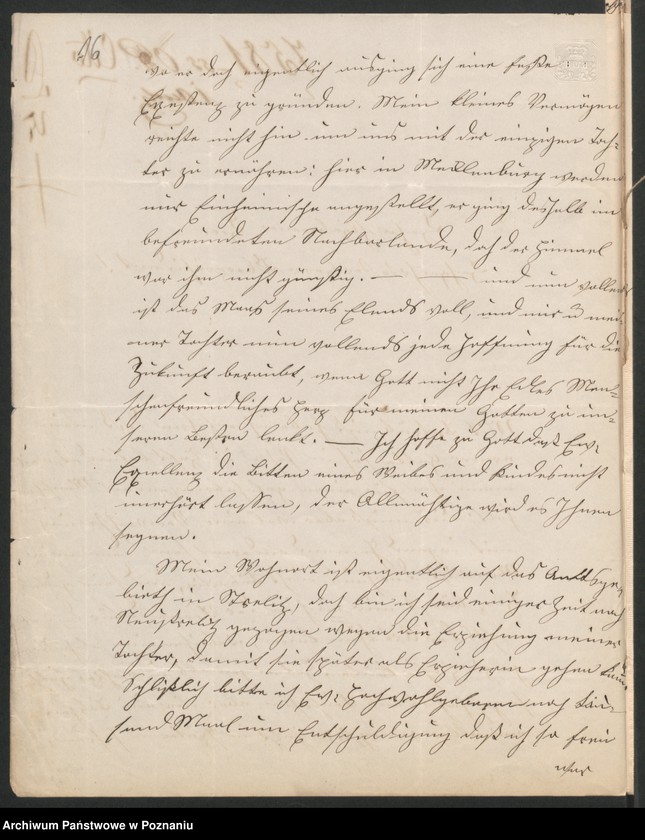 26
wo er doch eigentlich ausging sich eine feste
Existenz zu gründen. Mein kleines Vermögen
reichte nicht hin um uns mit der einzigen Toch-
ter zu ernähren; hier in Mecklenburg werden
nur Einheimische angestellt, er ging deshalb im
befreundeten Nachbarlande, doch der Himmel
war ihm nicht günstig. — — und nun vollends
ist das Maas seines Elends voll, und mir u mei
ner Tochter nun vollends jede Hoffnung für die
Zukunft beraubt, wenn Gott nicht Ihr Edles Men-
schenfreundliches Herz für meinen Gatten zu un-
serm Besten lenkt. — Ich hoffe zu Gott daß Ew:
Exzellenz die Bitten eines Weibes und Kindes nicht
unerhört lassen, der Allmächtige wird es Ihnen
segnen.
Mein Wohnort ist eigentlich auf das
in Strelitz, doch bin ich seid einiger Zeit nach
Neustrelitz gezogen wegen die Erziehung meiner
Tochter, damit sie später als Erzieherin gehen kann.
Schlißlich bitte ich Ew: Hochwohlgeboren noch tau-
send Maal um Entschuldigung daß ich so frei
war
Archiwum Państwowe w Poznaniu